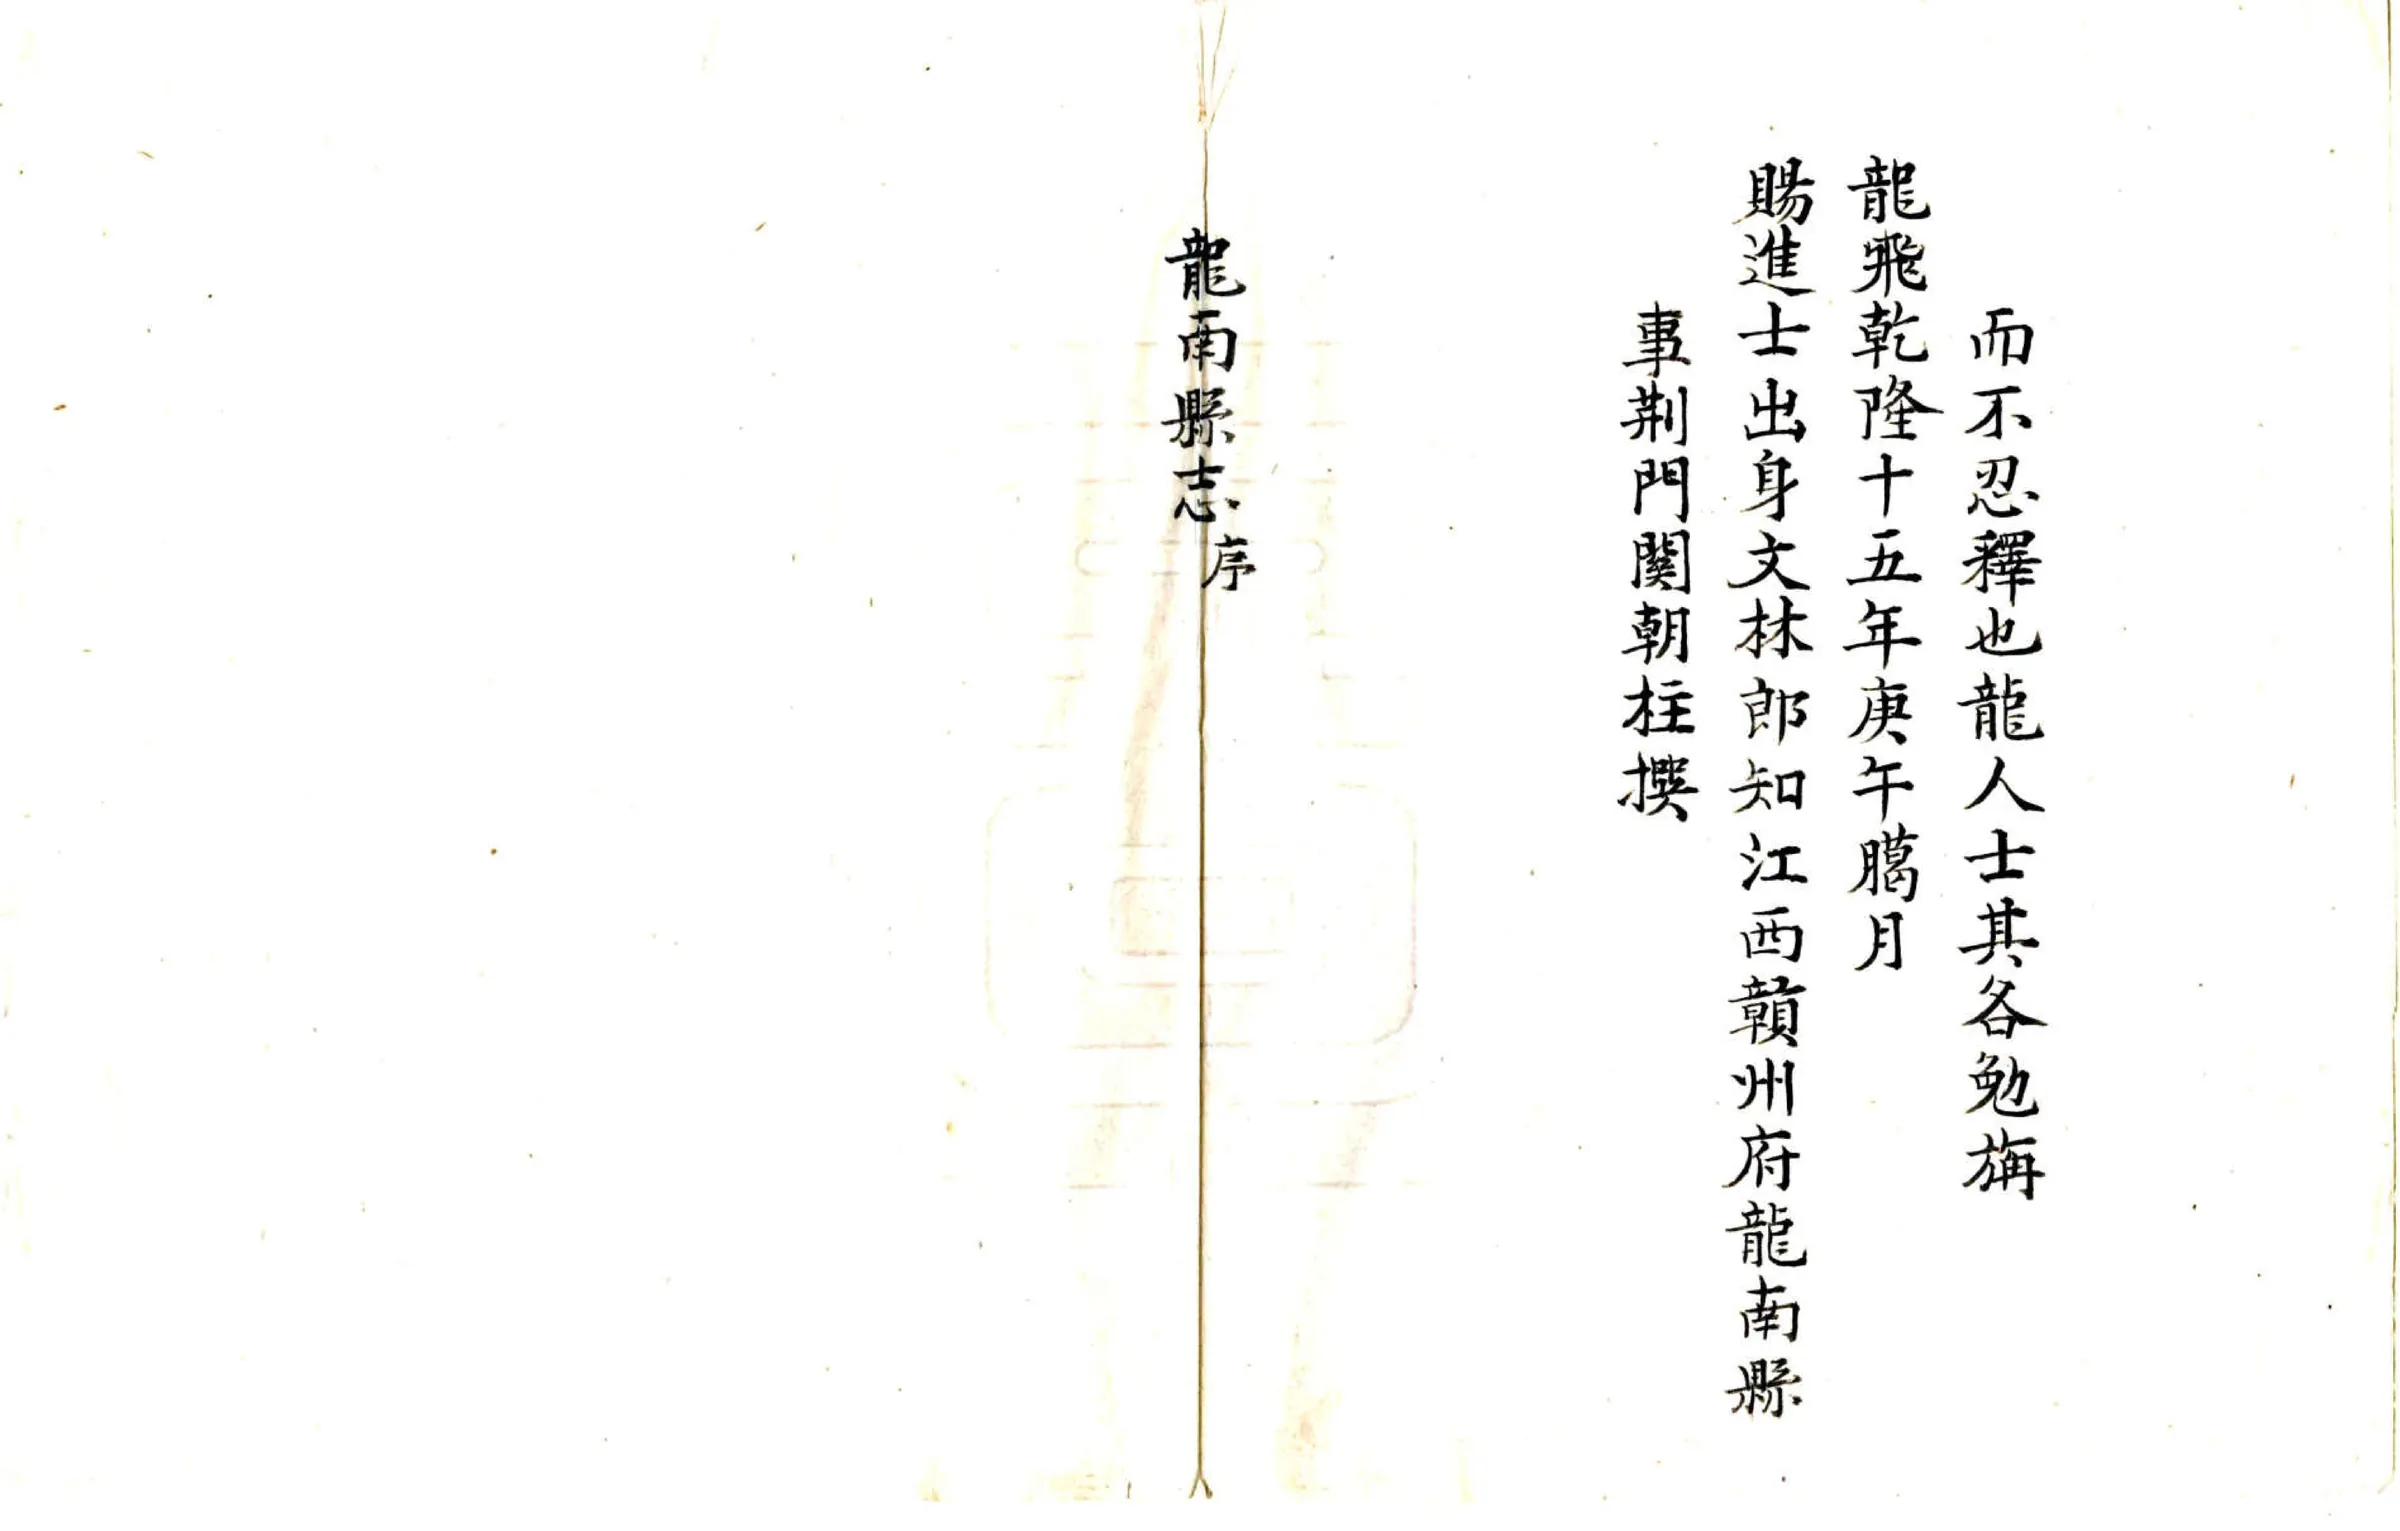 而不忍釋也龍人士其各勉旃
龍飛乾隆十五年庚午臈月
賜進士出身文林郎知江西贛州府龍南縣
事荆門関朝柱撰
龍南縣志序